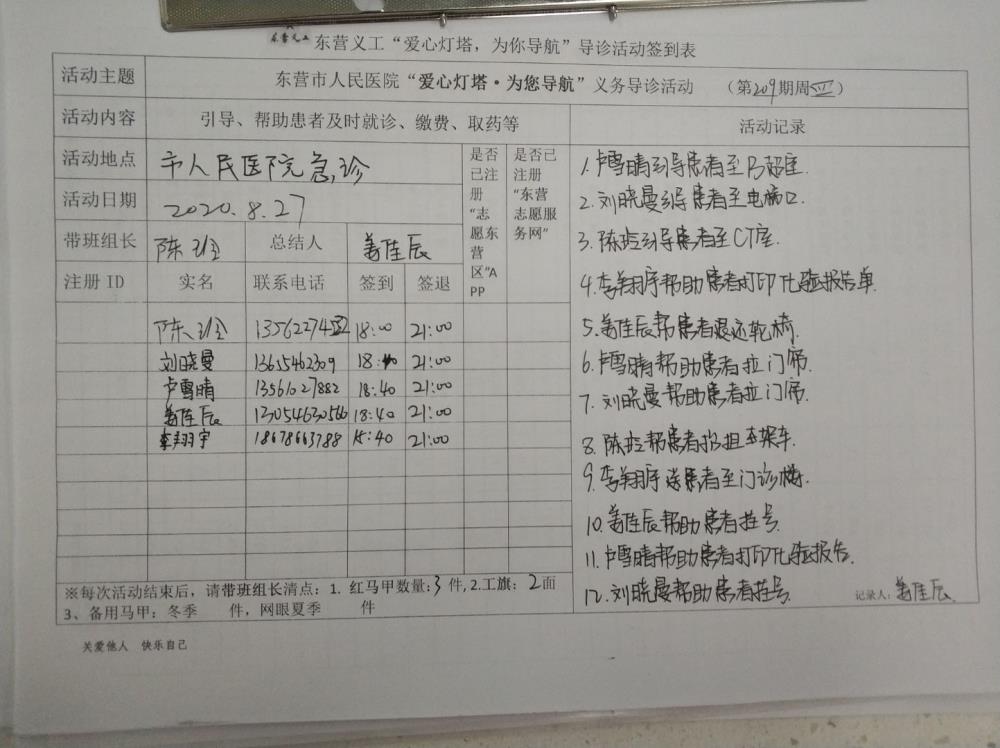 东营义工
东营义工“爱心灯塔，为你导航”导诊活动签到表
活动主题 东营市人民医院“爱心灯塔·为您导航”义务导诊活动 （第209期周四）
活动内容 引导、帮助患者及时就诊、缴费、取药等 活动记录
活动地点 市人民医院急诊
活动日期 2020.8.27
是否已注册“志愿东营区”APP
是否已注册“东营志愿服务网”
带班组长 陈 总结人 姜佳辰
注册 ID 实名 联系电话 签到 签退
陈 13562274 18:00 21:00
刘晓曼 13615462309 18: 21:00
卢雪晴 13561027882 18:40 21:00
姜佳辰 13054630566 18:40 21:00
李翔宇 18678663788 18:40 21:00
1.卢雪晴引导患者至B超室.
2.刘晓曼引导患者至电梯口.
3.陈引导患者至CT室.
4.李翔宇帮助患者打印化验报告单.
5.姜佳辰帮患者退还轮椅.
6.卢雪晴帮助患者拉门帘.
7.刘晓曼帮助患者拉门帘.
8.陈帮患者担架车.
9.李翔宇送患者至门诊楼.
10.姜佳辰帮助患者挂号.
11.卢雪晴帮助患者打印化验报告.
12.刘晓曼帮助患者挂号.
记录人：姜佳辰.
※每次活动结束后，请带班组长清点：1. 红马甲数量:3 件,2.工旗：2面
3、备用马甲：冬季 件，网眼夏季 件
关爱他人 快乐自己